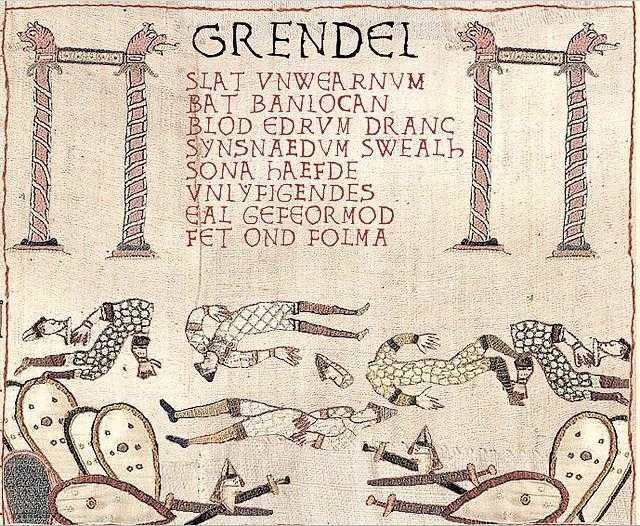 GRENDEL
SLAT VNWEARNVM
BAT BANLOCAN
BLOD EDRVM DRANC
SYNSNAEDVM SWEALh
SONA hAEFDE
VNLYFIGENDES
EAL GEFEORMOD
FET OND FOLMA